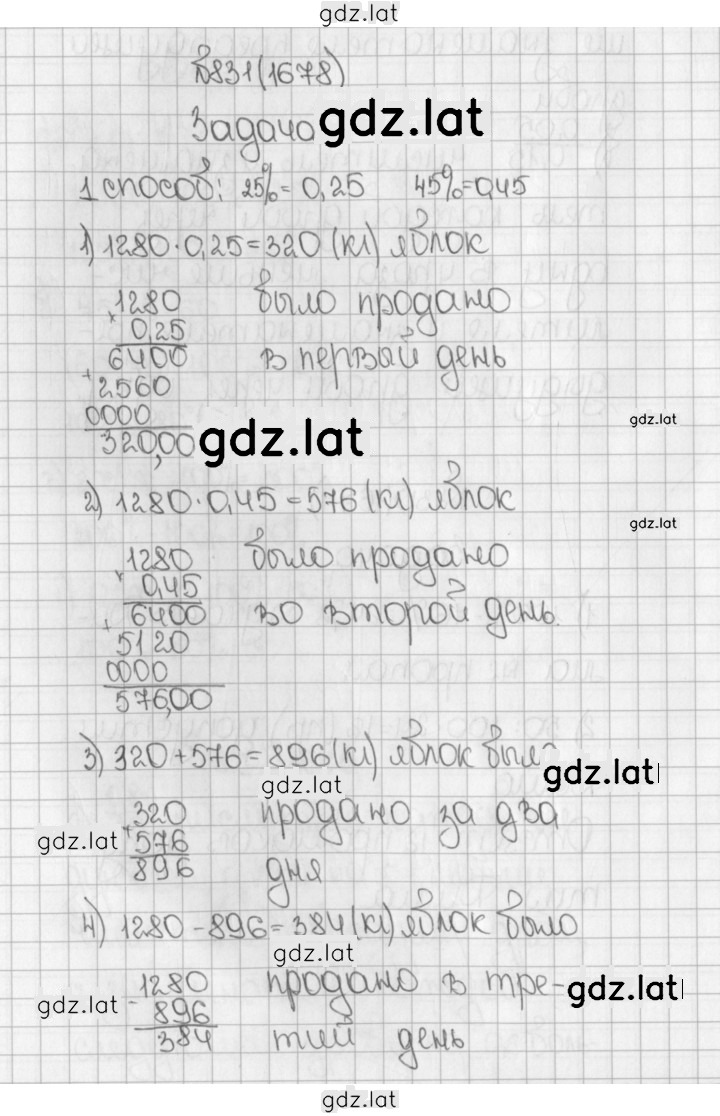 gdz.lat
№831(1678)
Задача gdz.lat
1 способ: 25%=0,25 45%=0,45
1) 1280·0,25=320 (кг) яблок
1280 было продано
× 0,25
6400 в первый день
+ 2560
0000 gdz.lat
320,00 gdz.lat
2) 1280·0,45=576 (кг) яблок
gdz.lat
1280 было продано
× 0,45
6400 во второй день.
+ 5120
0000
576,00
3) 320+576=896 (кг) яблок было
gdz.lat gdz.lat
320 продано за два
gdz.lat + 576
896 дня
4) 1280-896=384 (кг) яблок было
gdz.lat
1280 продано в тре- gdz.lat
gdz.lat - 896
384 тий день
gdz.lat